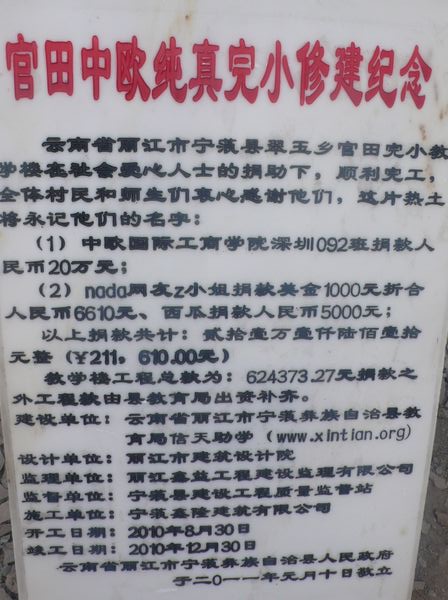 官田中欧纯真完小修建纪念
云南省丽江市宁蒗县翠玉乡官田完小教
学楼在社会爱心人士的捐助下，顺利完工，
全体村民和师生们衷心感谢他们，这片热土
将永记他们的名字：
（1）中欧国际工商学院深圳092班捐款人
民币20万元；
（2）nada网友z小姐捐款美金1000元折合
人民币6610元、西瓜捐款人民币5000元；
以上捐款共计：贰拾壹万壹仟陆佰壹拾
元整（¥211，610.00元）
教学楼工程总款为：624373.27元捐款之
外工程款由县教育局出资补齐。
建设单位：云南省丽江市宁蒗彝族自治县教
育局信天助学（www.xintian.org）
设计单位：丽江市建筑设计院
监理单位：丽江鑫益工程建设监理有限公司
监督单位：宁蒗县建设工程质量监督站
施工单位：宁蒗鑫隆建筑有限公司
开工日期：2010年8月30日
竣工日期：2010年12月30日
云南省丽江市宁蒗彝族自治县人民政府
于二0一一年元月十日敬立